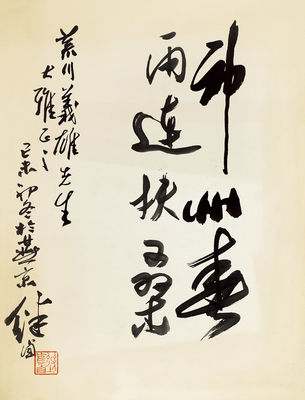 神州春
雨連扶桑
荒川義雄先生
大雅正之
己未初冬於燕京